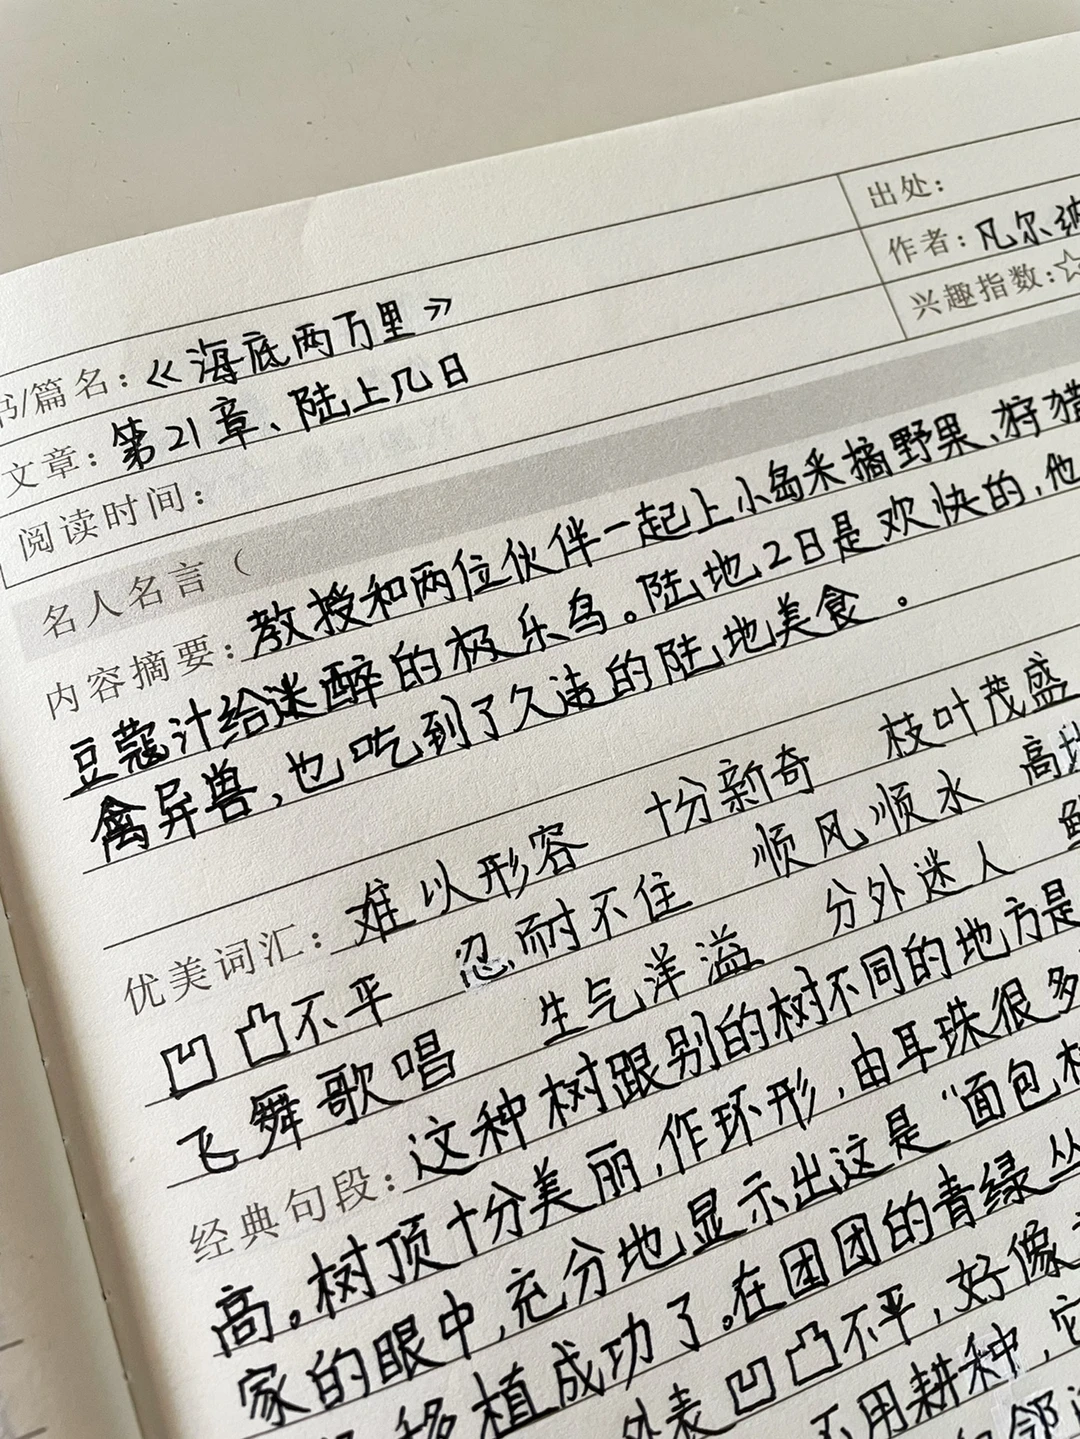 出处:
作者: 凡尔纳
兴趣指数:☆
书/篇名: 《海底两万里》
文章: 第21章、陆上几日
阅读时间:
名人名言(
内容摘要: 教授和两位伙伴一起上小岛采摘野果、狩猎
豆蔻汁给迷醉的极乐鸟。陆地2日是欢快的,他
禽异兽,也吃到了久违的陆地美食。
优美词汇: 难以形容 十分新奇 枝叶茂盛
凹凸不平 忍耐不住 顺风顺水 高地
飞舞歌唱 生气洋溢 分外迷人
经典句段: 这种树跟别的树不同的地方是
高。树顶十分美丽,作环形,由耳珠很多
家的眼中,充分地显示出这是“面包
移植成功了。在团团的青绿丛
外表凹凸不平,好像
不用耕种,它
邻